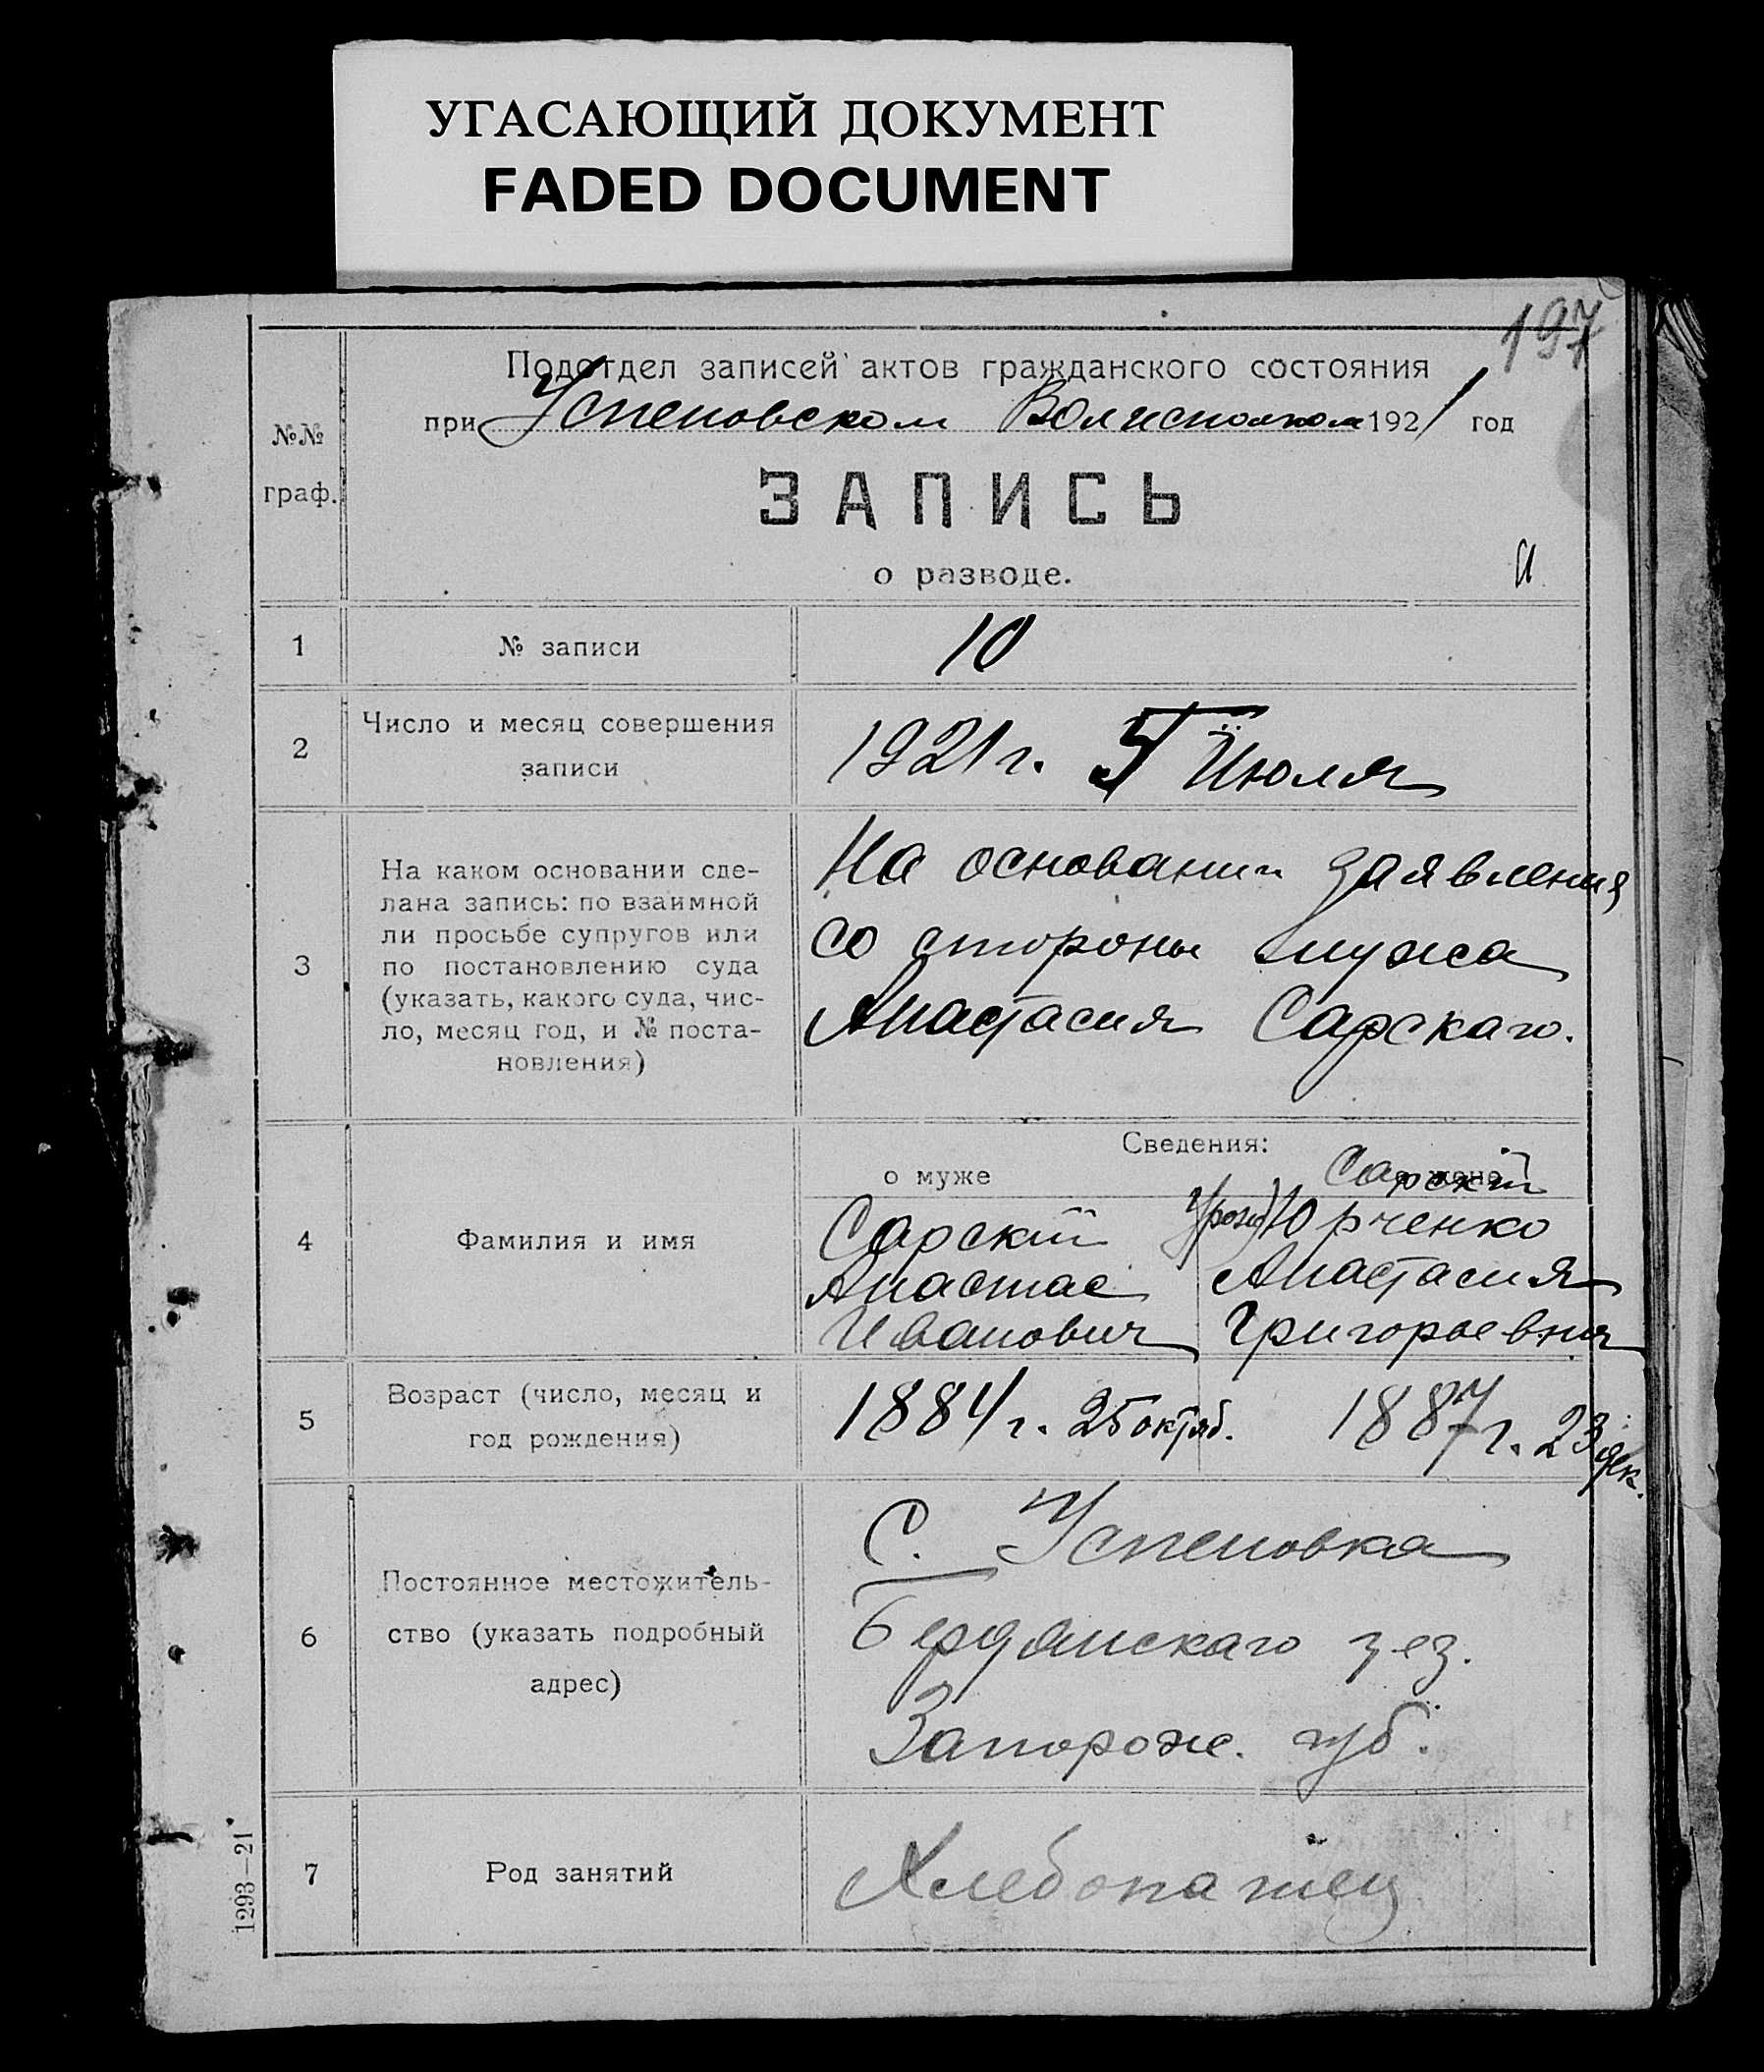 УГАСАЮЩИЙ ДОКУМЕНТ
FADED DOCUMENT
197
Подотдел записей актов гражданского состояния
при Успеновском Волисполком 1921 год
№№
граф.
ЗАПИСЬ
о разводе.
1 № записи 10
2 Число и месяц совершения
записи
1921 г. 5 Июля
3
На каком основании сде-
лана запись: по взаимной
ли просьбе супругов или
по постановлению суда
(указать, какого суда, чис-
ло, месяц год, и № поста-
новления)
На основании заявления
со стороны мужа
Анастасия Сарскаго.
Сведения:
о муже
о жене
4 Фамилия и имя
Сарскій
Анастас
Иванович
Сарскій
Урожд) Юрченко
Анастасия
Григорьевна
5 Возраст (число, месяц и
год рождения)
1884 г. 25 октяб.
1887 г. 23 дек.
6
Постоянное местожитель-
ство (указать подробный
адрес)
С. Успеновка
Бердянскаго уез.
Запорож. губ.
7 Род занятий Хлебопашец
1293—21